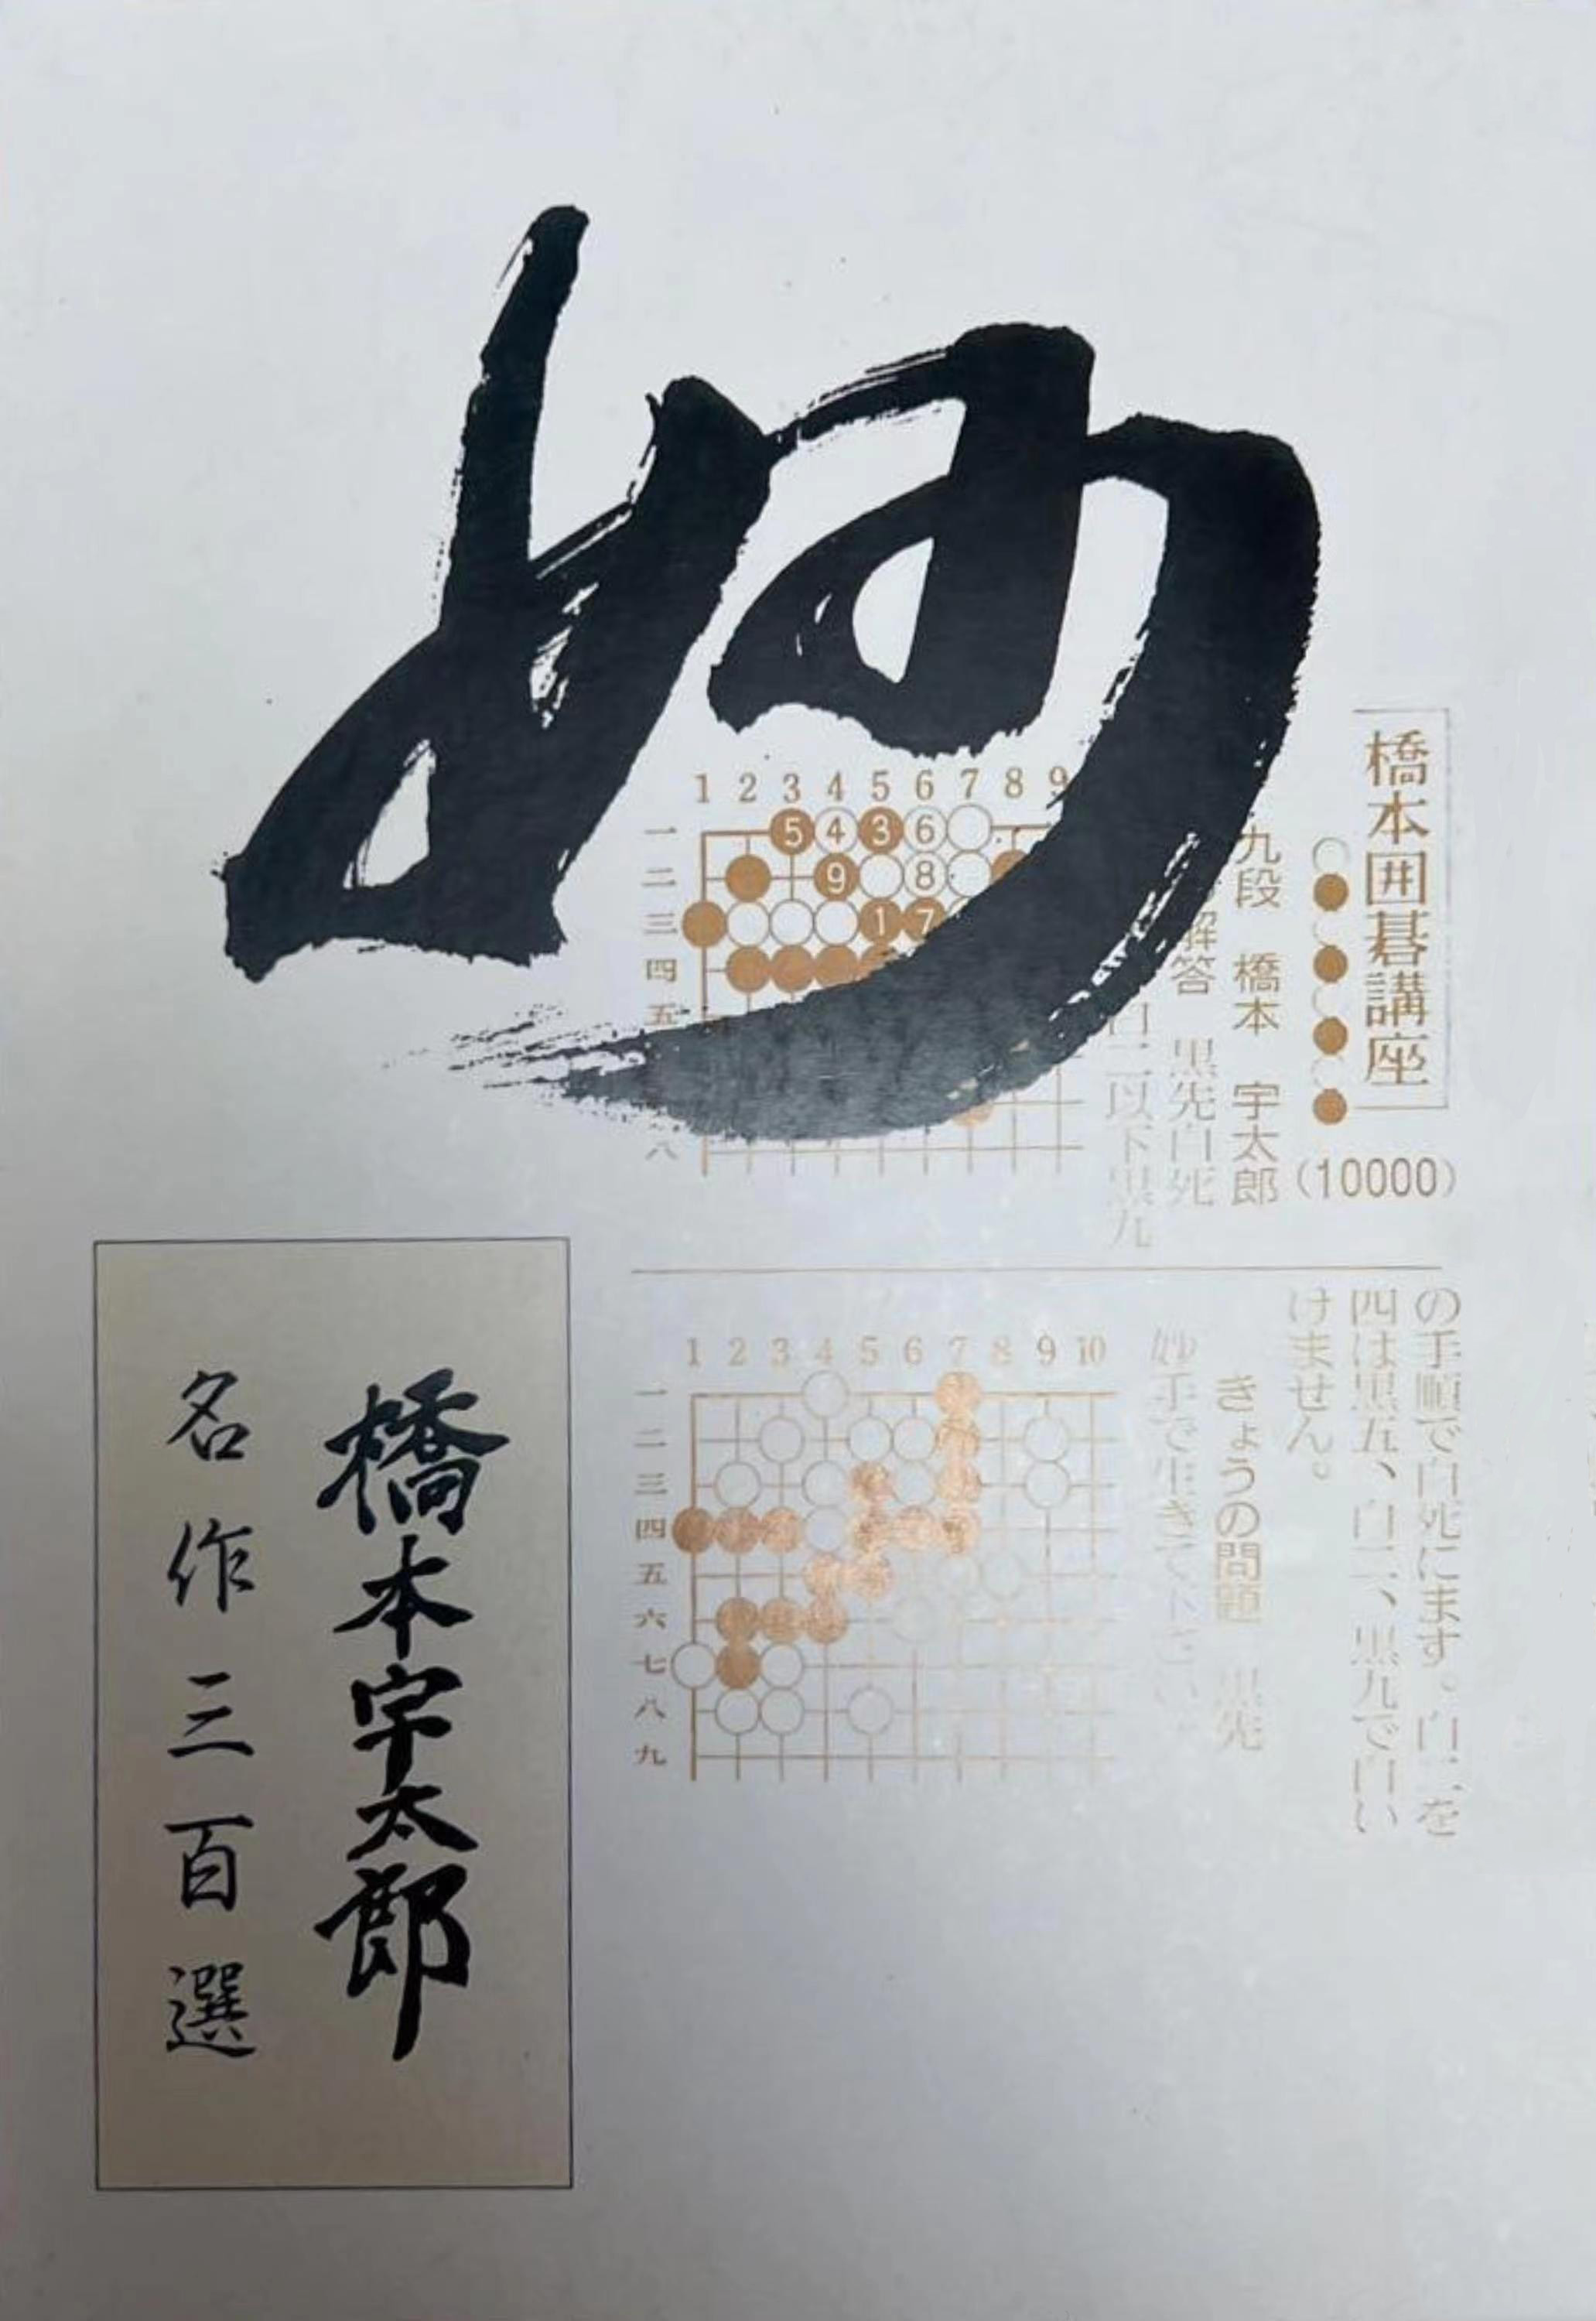 妙
橋本囲碁講座
(10000)
九段 橋本 宇太郎
解答 黒先白死
白二以下黒九
1 2 3 4 5 6 7 8 9
一 5 4 3 6
二 9 8
三 1 7
四
五
八
の手順で白死にます。白二を
四は黒五、白二、黒九で白い
けません。
きょうの問題 黒先
妙手で生きて下さい
1 2 3 4 5 6 7 8 9 10
一
二
三
四
五
六
七
八
九
橋本宇太郎
名作三百選